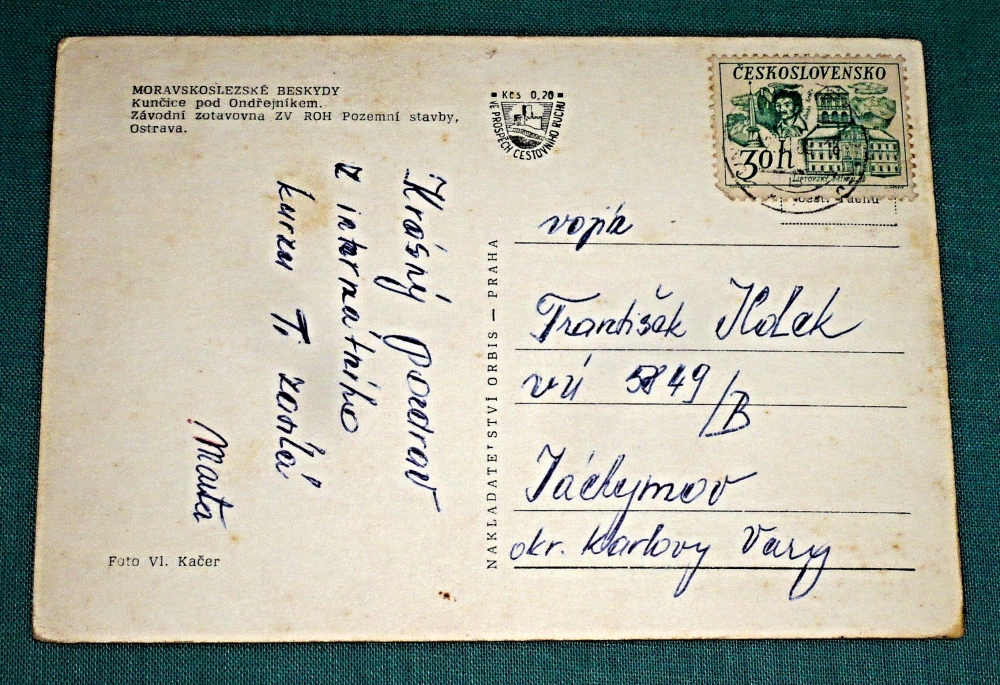 MORAVSKOSLEZSKÉ BESKYDY
Kunčice pod Ondřejníkem.
Závodní zotavovna ZV ROH Pozemní stavby,
Ostrava.
Kčs 0,20
VE PROSPĚCH CESTOVNÍHO RUCHU
ČESKOSLOVENSKO
30h
LIPTOVSKÝ
Krásný pozdrav
z internátního
kurzu Ti zasílá
Marta
NAKLADATELSTVÍ ORBIS — PRAHA
vojín
František
VÚ 5849/B
Jáchymov
okr. Karlovy Vary
Foto Vl. Kačer